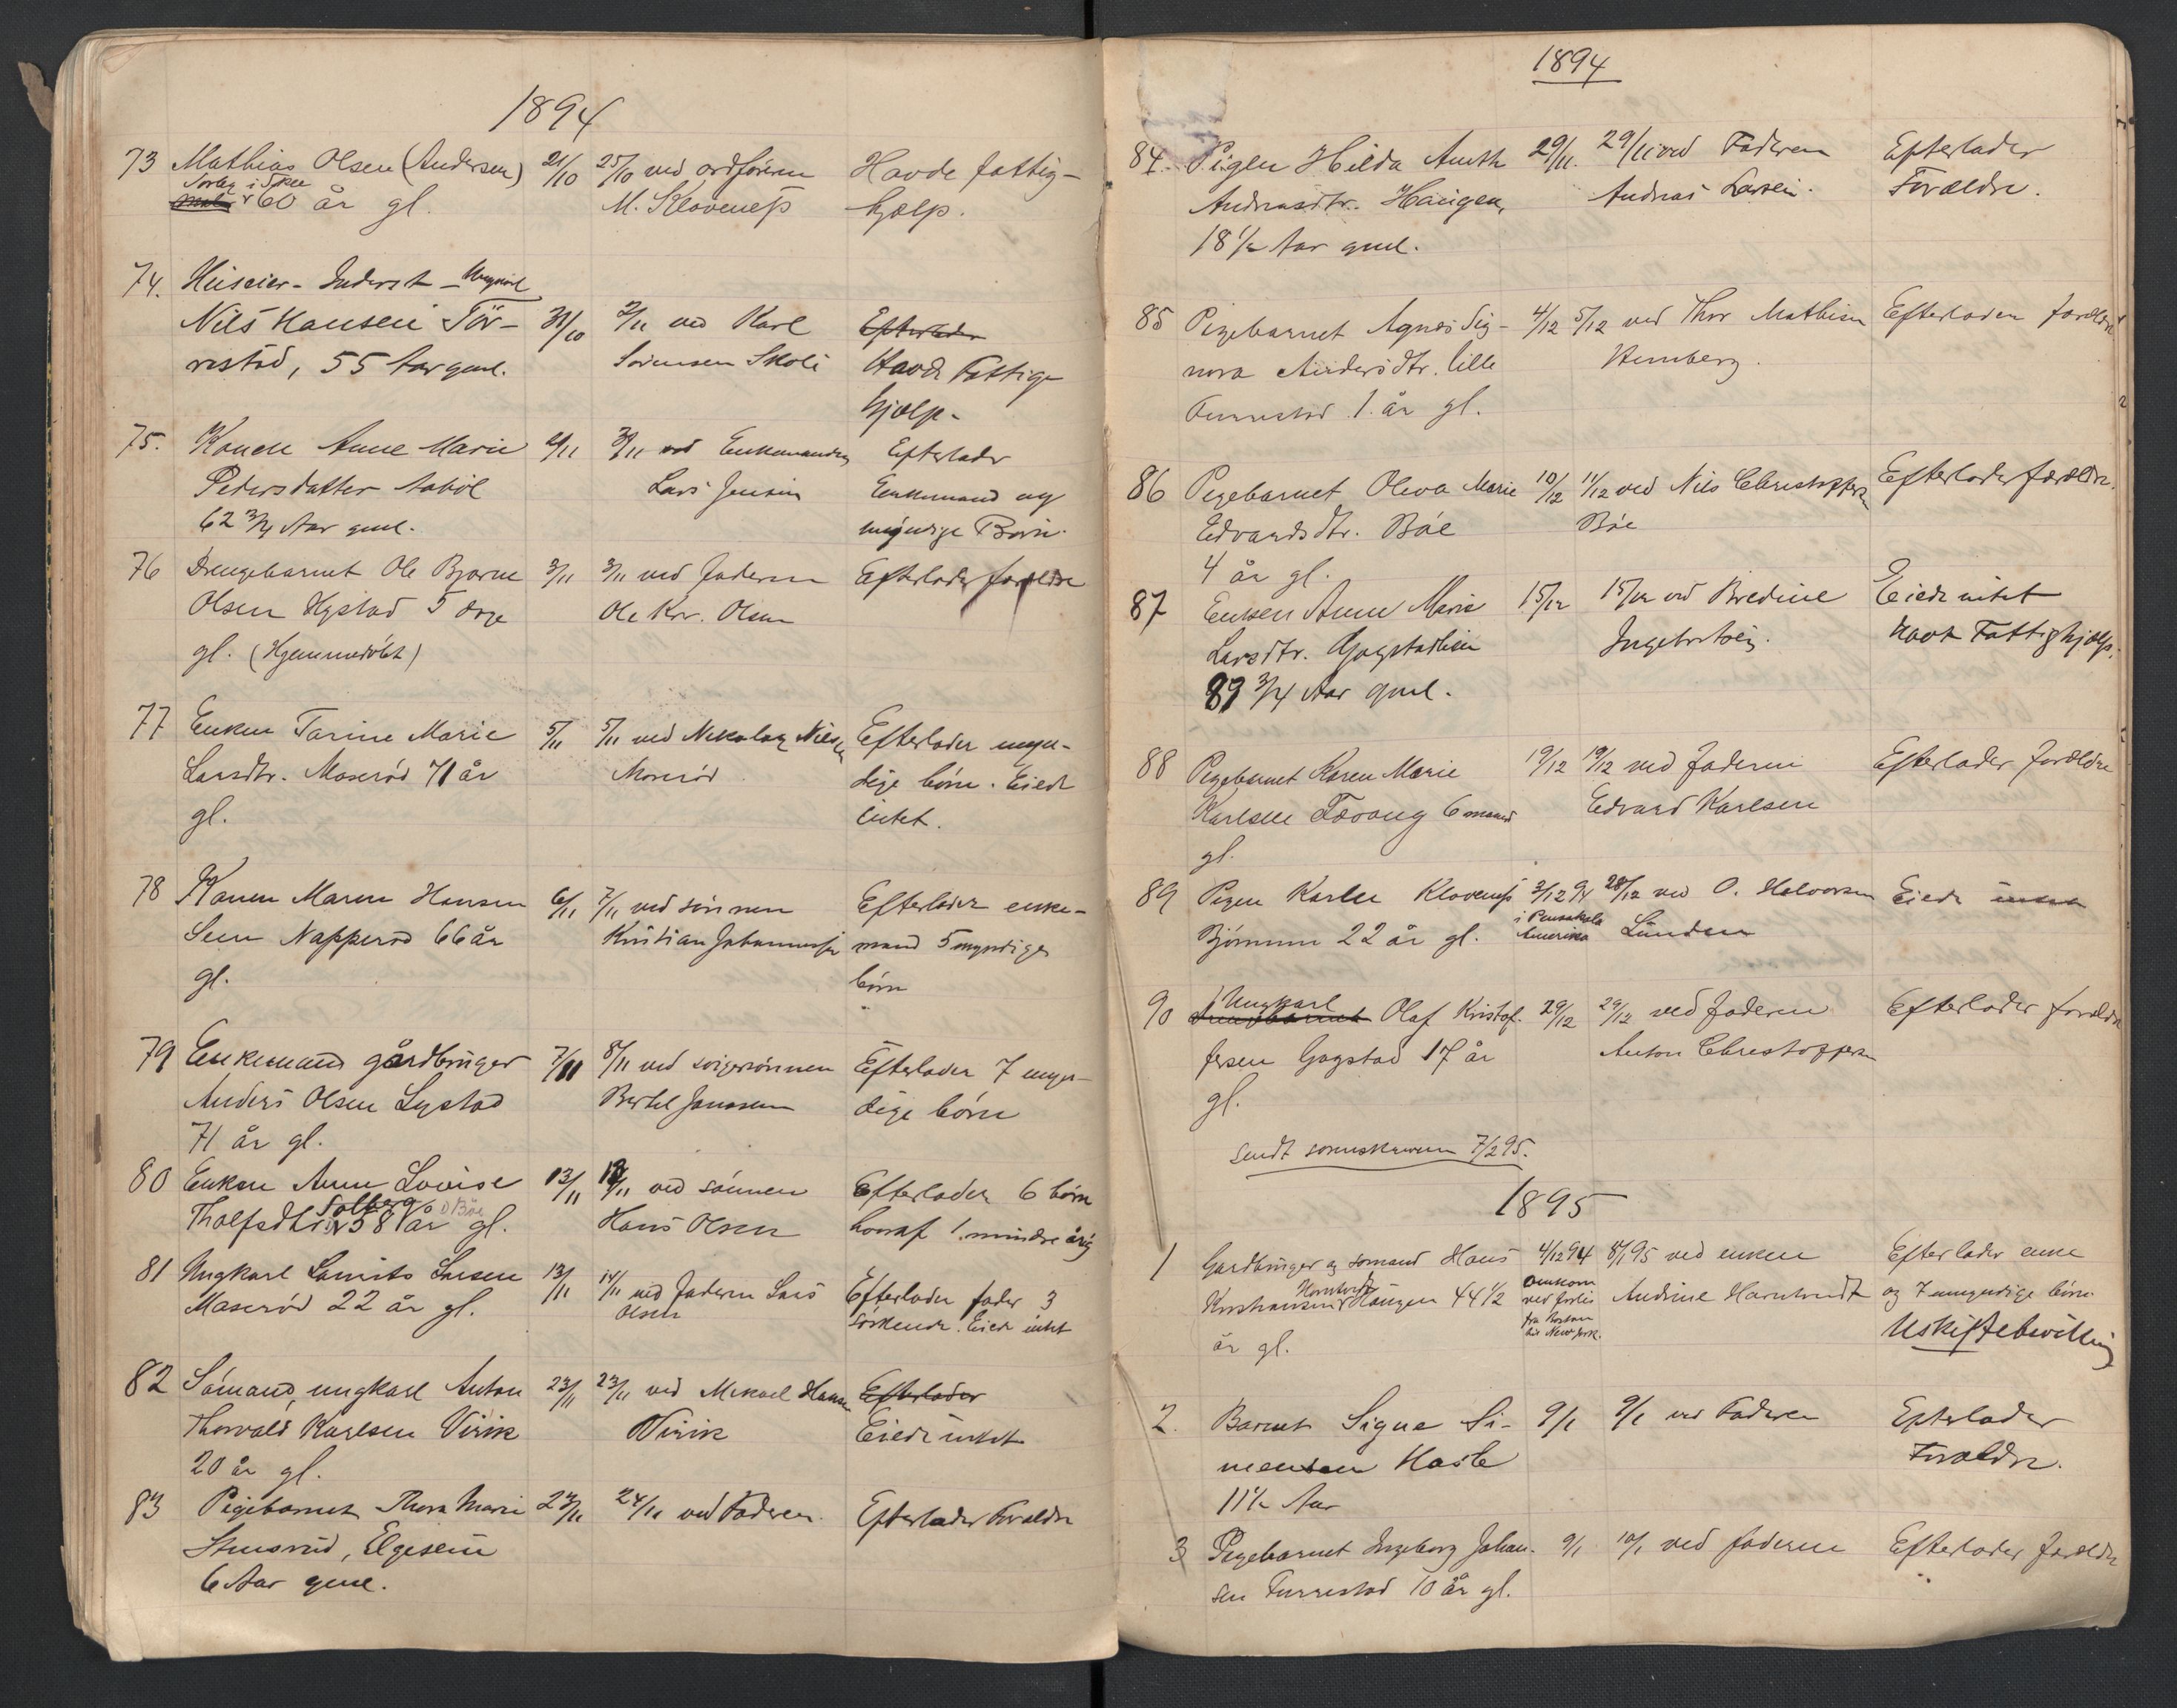 1894
73 Mathias Olsen (Andersen) 21/10 25/10 ved ordføreren Havde fattig-
60 år gl. M. Klaveness hjælp.
74. Huseier - Inderst - Ungkarl
Nils Hansen Tör- 31/10 2/11 ved Karl Efterlader
restad, 55 Aar gml. Sörensen Skoli Havde Fattig
hjælp.
75. Konen Anne Marie 2/11 3/11 ved Enkemanden Efterlader
Pedersdatter Aaböl Lars Jensen Enkemand og
62 3/4 Aar gml. myndige Børn.
76 Drengebarnet Ole Bjarne 3/11 3/11 ved faderen Efterlader forældre
Olsen Hystad 5 dage Ole Kr. Olsen
gl. (Hjemmedöbt)
77 Enken Tarine Marie 5/11 5/11 ved Nikolay Nilsen Efterlader myn-
Larsdtr. Moserød 71 år Moserød dige börn. Eiede
gl. intet.
78 Konen Maren Hansen 6/11 7/11 ved sönnen Efterlader enke-
Seen Napperød 66 år Kristian Johannesen mand 5 myndige
gl. börn
79 Enkemand gårdbruger 7/11 8/11 ved svigersönnen Efterlader 7 myn-
Anders Olsen Lystad Bertel Jonassen dige börn
71 år gl.
80 Enken Anne Lovise 13/11 ved sönnen Efterlader 6 børn
Tholfsdtr. Solberg 58 år gl. Hans Olsen hvoraf 1. mindreårig
81 Ungkarl Laurits Larsen 13/11 14/11 ved faderen Lars Efterlader fader 3
Maserød 22 år gl. Olsen söskende. Eiede intet
82 Sömand, ungkarl Anton 23/11 23/11 ved Mikael Hansen Efterlader
Thorvald Karlsen Virik Virik Eiede intet
20 år gl.
83 Pigebarnet Thora Marie 24/11 ved Faderen. Efterlader Forældre
Stensrud, Elgesem
6 Aar gml.
1894
84. Pigen Hilda Amth 29/11. 29/11 ved Faderen Efterlader
Andreasdtr. Haugen, Andreas Larsen. Forældre.
18 1/2 Aar gml.
85 Pigebarnet Agnes Sig- 4/12 5/12 ved Thor Mathisen Efterlader forældre
nora Andersdtr. lille Stensberg.
Furustad 1. år gl.
86 Pigebarnet Oleva Marie 10/12 11/12 ved Nils Christoffersen Efterlader forældre.
Edvardsdtr. Bøe Bøe
4 år gl.
87 Enken Anne Marie 15/12 15/12 ved Bredine Eiede intet
Larsdtr. Gogstadlien Havde Fattighjælp.
89 3/4 Aar gml.
88 Pigebarnet Karen Marie 19/12 19/12 ved faderen Efterlader forældre
Karlsen Forvang 6 maaned Edvard Karlsen
gl.
89 Pigen Karlee Klavenes 3/12 94 28/12 ved O. Halvorsen Eiede intet
i Pensakola
Amerika
Bjørnum 22 år gl. Lunden
90 Ungkarl
Drengebarnet Olaf Kristof- 29/12 29/12 ved faderen Efterlader forældre
fersen Gogstad 17 år Anton Christoffersen
gl.
Sendt sorenskriveren 7/2 95.
1895
1 Gardbruger og sømand Hans 4/12 94 8/1 95 ved enken Efterlader enke
Kristiansen Horntvedt Haugen 44 1/2 omkom ved forlis Andrine Horntvedt og 7 umyndige börn.
fra Boston til New York.
år gl. Uskiftebevilling
2. Barnet Signe Si- 9/1 9/1 ved Faderen Efterlader
monsen Hasle Forældre.
11 1/2 Aar
3 Pigebarnet Ingeborg Johan- 9/1 10/1 ved faderen Efterlader forældre
sen Furrestad 10 år gl.